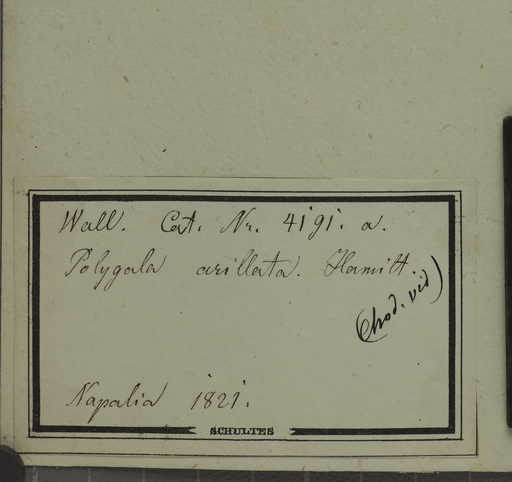 Wall. Cat. Nr. 4191. a.
Polygala arillata. Hamilt
(Chod. vid)
Napalia 1821.
SCHULTES